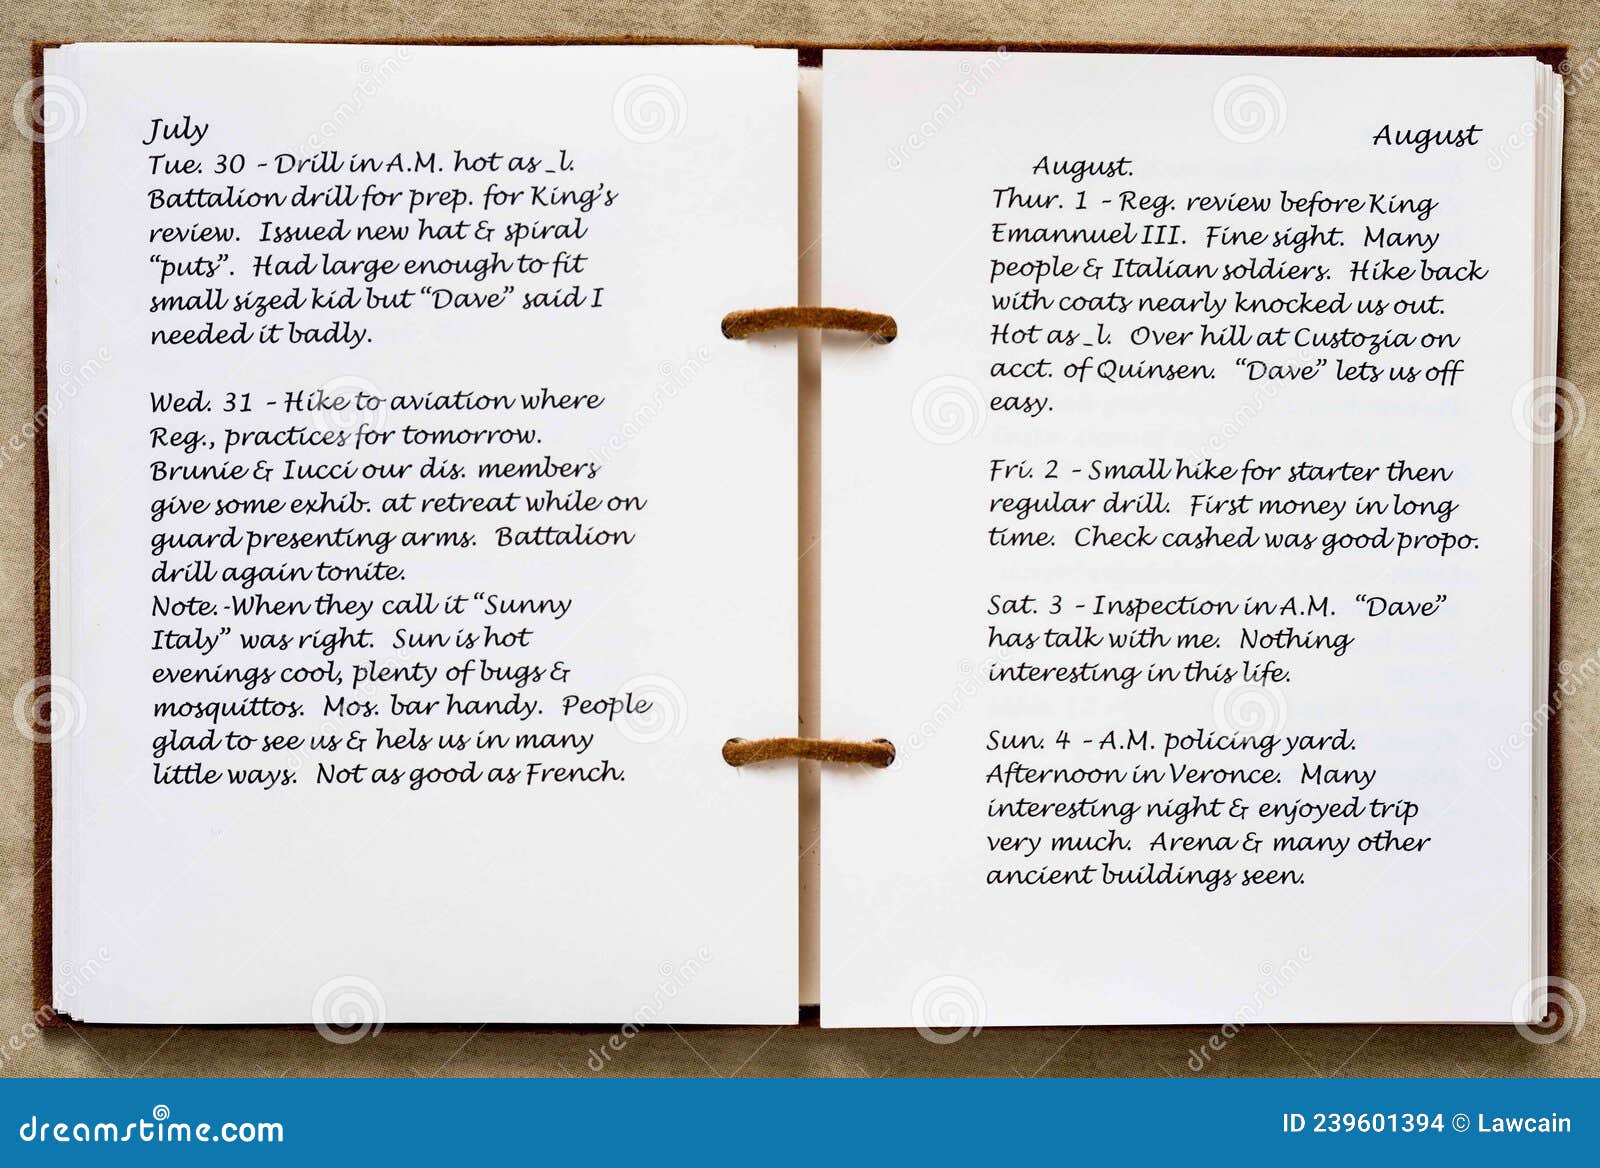 July
Tue. 30 – Drill in A.M. hot as _l.
Battalion drill for prep. for King's
review.  Issued new hat & spiral
“puts”.  Had large enough to fit
small sized kid but “Dave” said I
needed it badly.
Wed. 31 – Hike to aviation where
Reg., practices for tomorrow.
Brunie & Iucci our dis. members
give some exhib. at retreat while on
guard presenting arms.  Battalion
drill again tonite.
Note.-When they call it “Sunny
Italy” was right.  Sun is hot
evenings cool, plenty of bugs &
mosquittos.  Mos. bar handy.  People
glad to see us & hels us in many
little ways.  Not as good as French.
August
August.
Thur. 1 – Reg. review before King
Emannuel III.  Fine sight.  Many
people & Italian soldiers.  Hike back
with coats nearly knocked us out.
Hot as _l.  Over hill at Custozia on
acct. of Quinsen.  “Dave” lets us off
easy.
Fri. 2 – Small hike for starter then
regular drill.  First money in long
time.  Check cashed was good propo.
Sat. 3 – Inspection in A.M.  “Dave”
has talk with me.  Nothing
interesting in this life.
Sun. 4 – A.M. policing yard.
Afternoon in Veronce.  Many
interesting night & enjoyed trip
very much.  Arena & many other
ancient buildings seen.
dreamstime.com
ID 239601394 © Lawcain